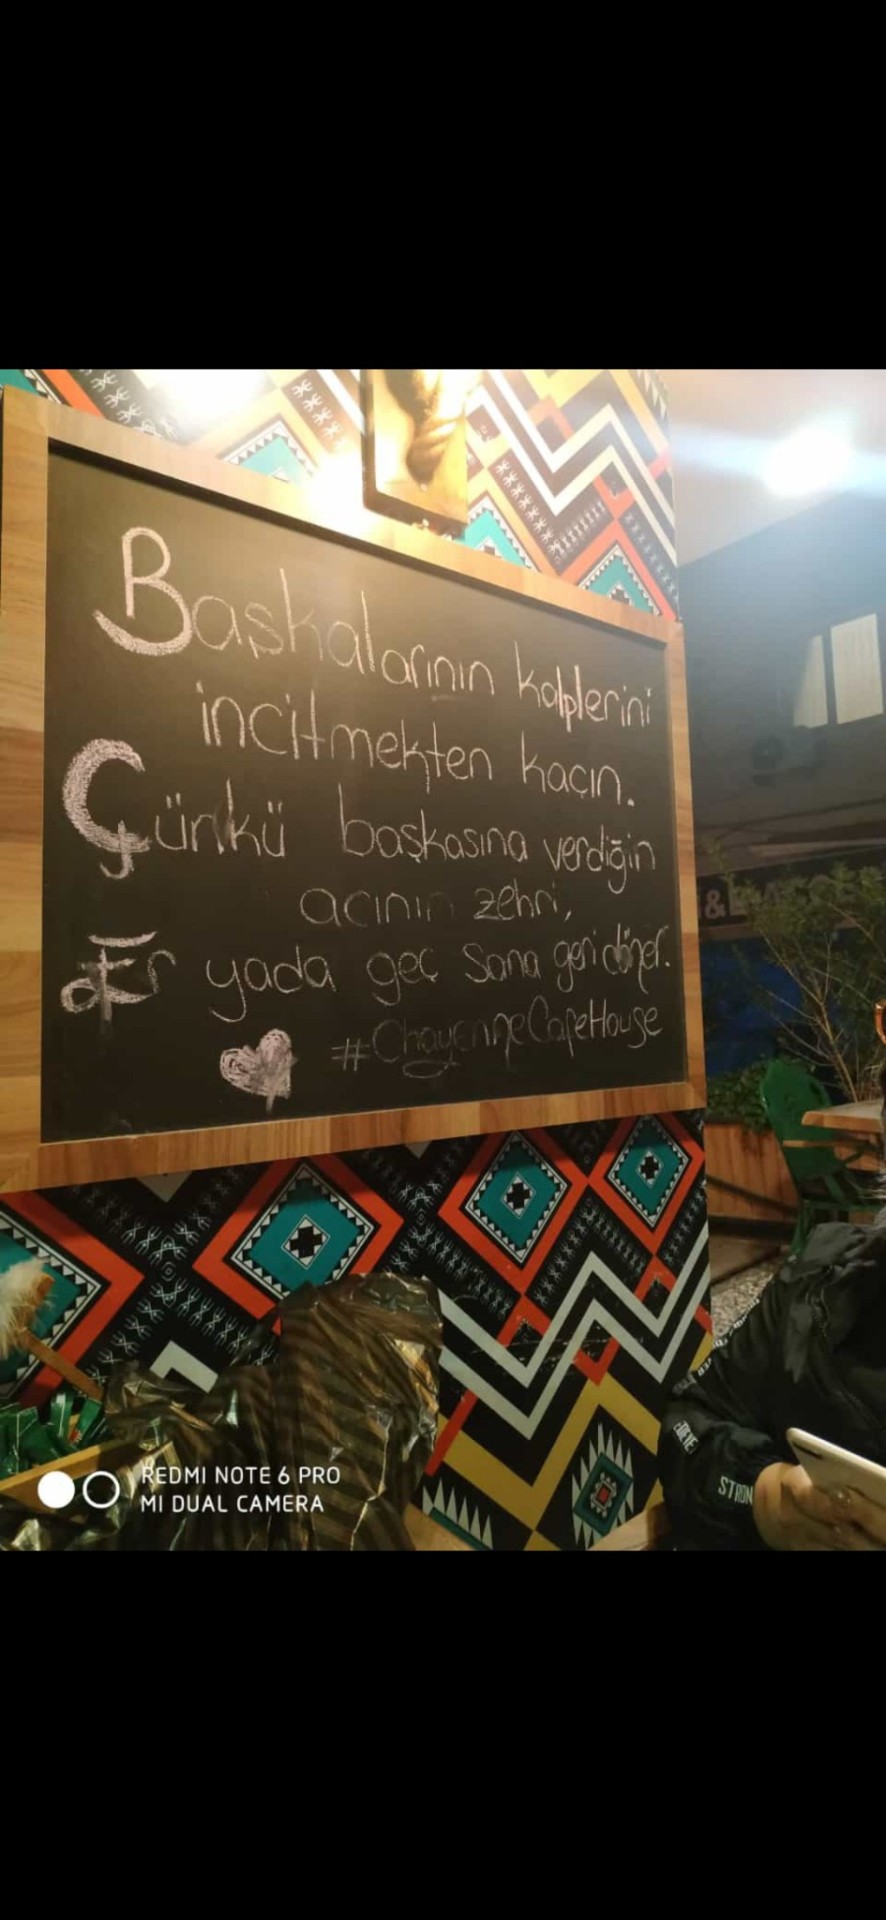 Başkalarının kalplerini
incitmekten kaçın.
Çünkü başkasına verdiğin
acının zehri,
Er yada geç sana geri döner.
#ChayenneCafeHouse
REDMI NOTE 6 PRO
MI DUAL CAMERA
STRON